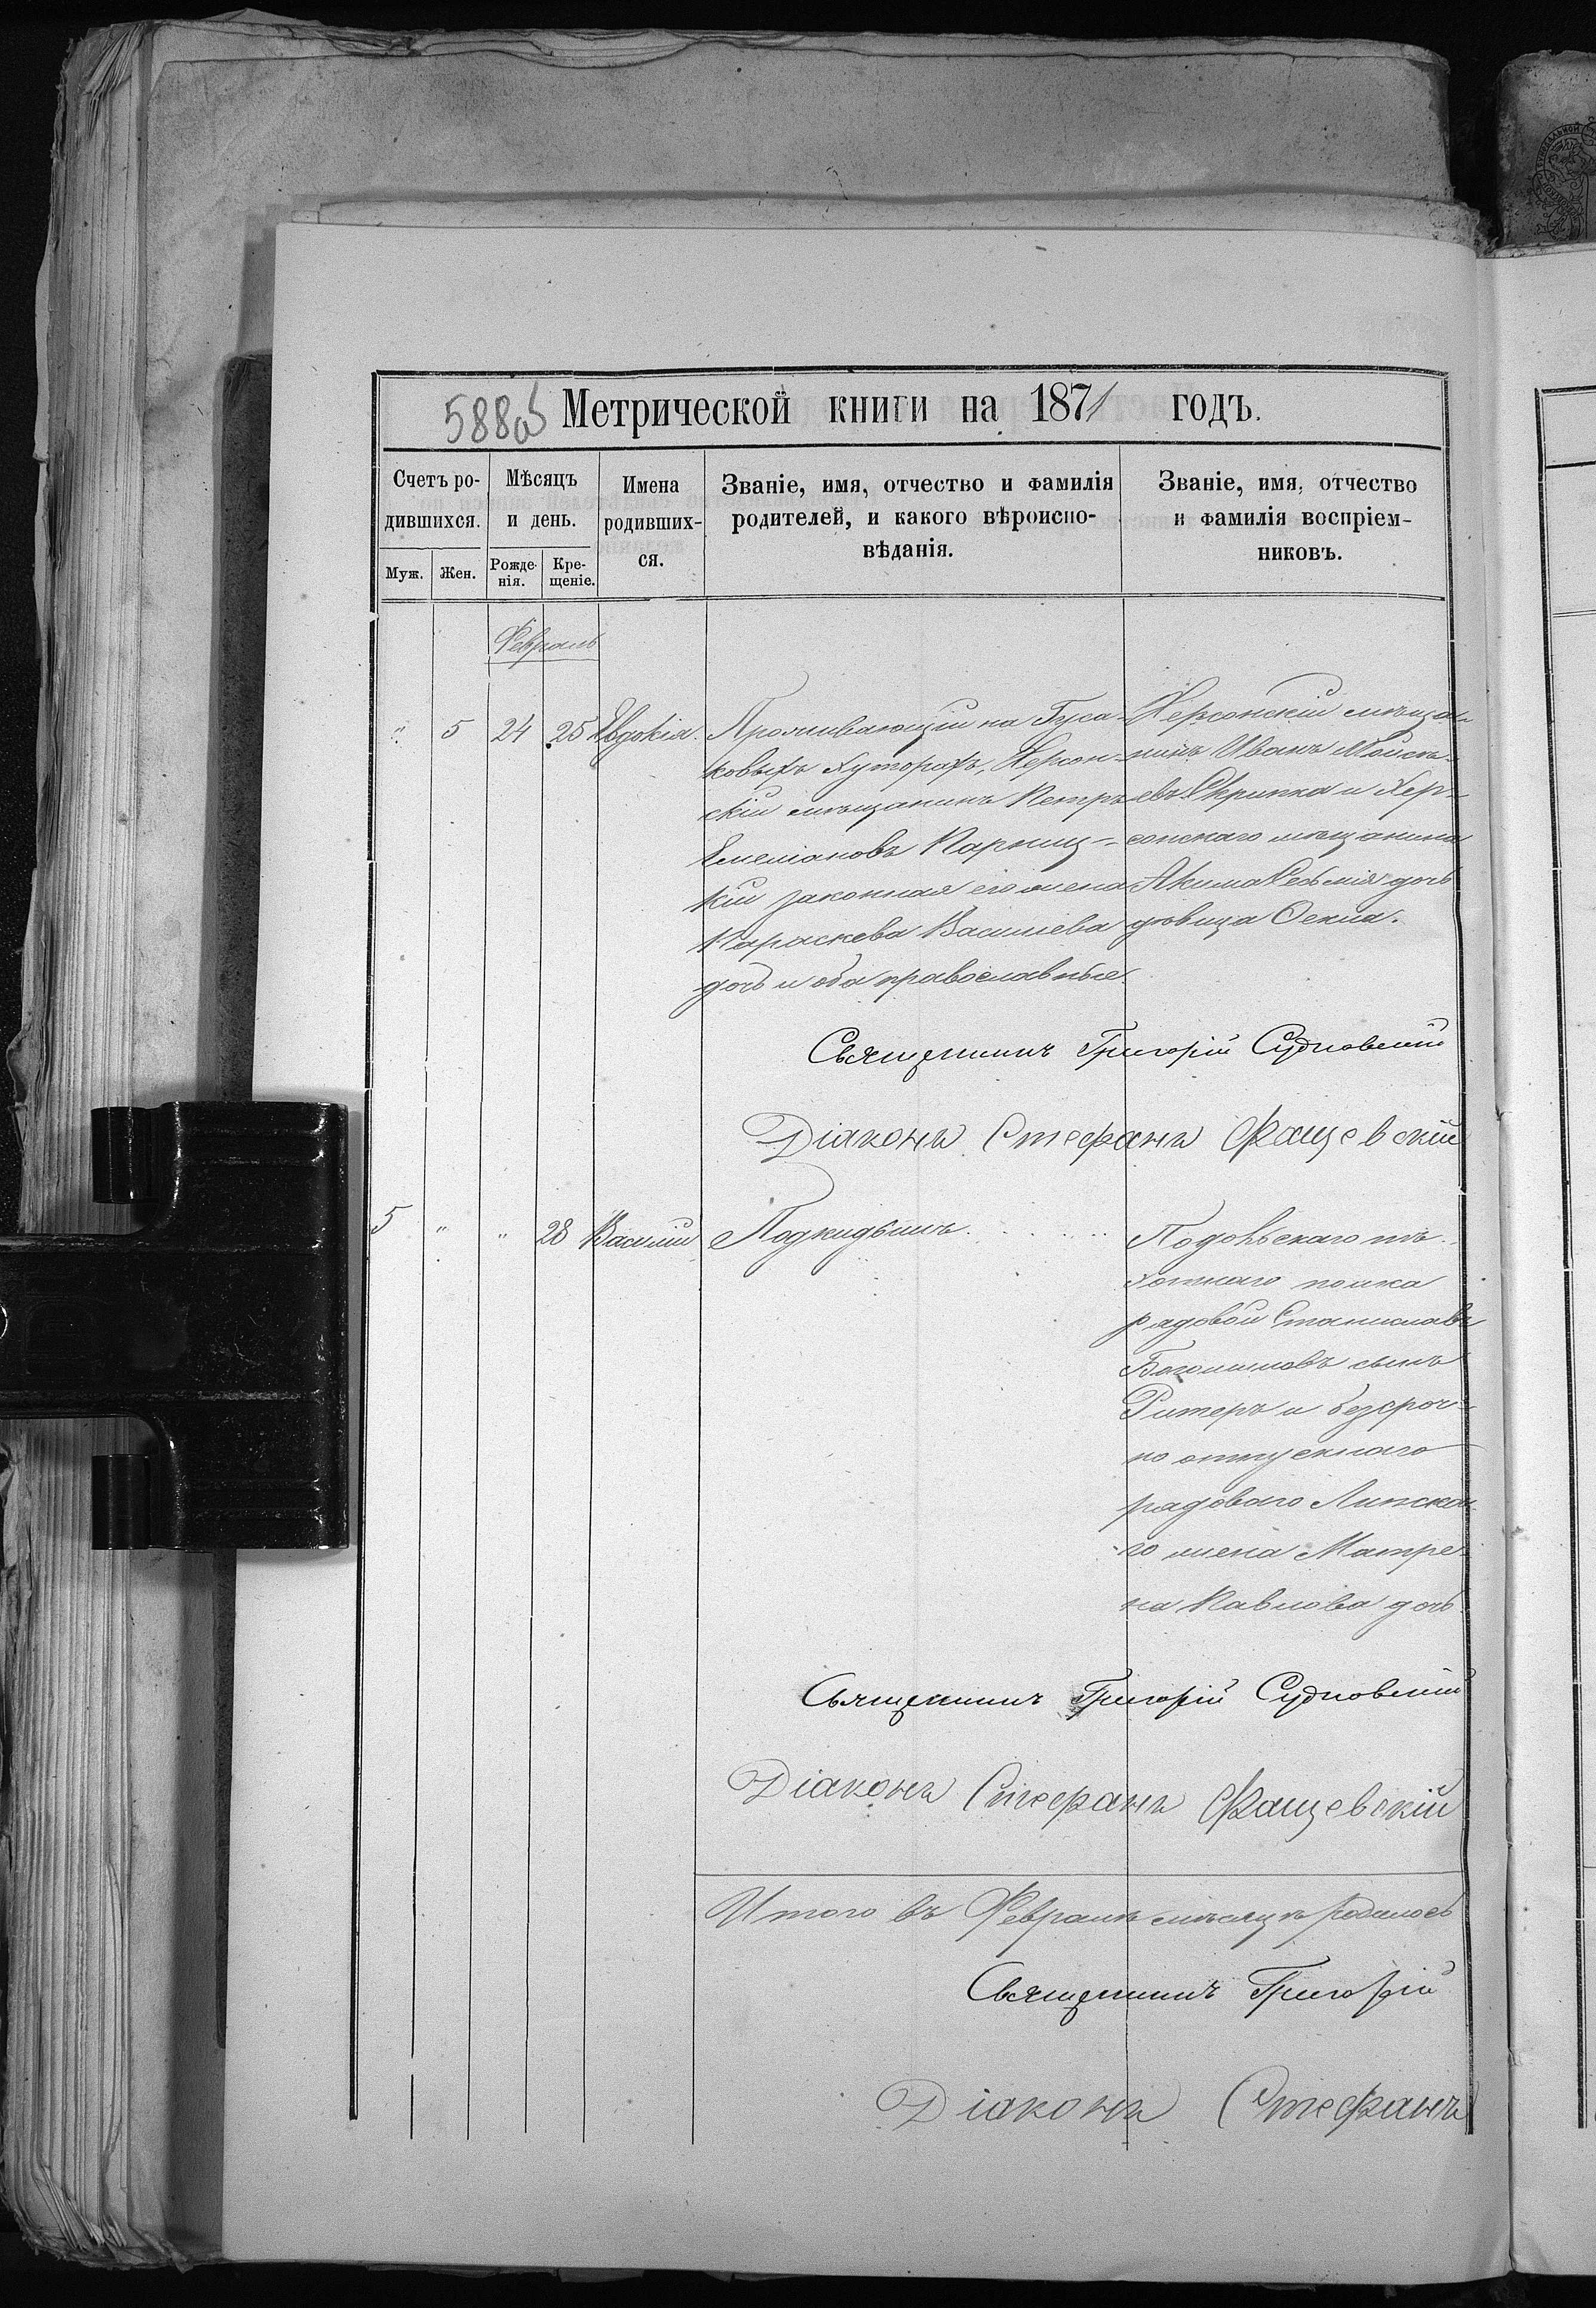 588об Метрической книги на 1871 годъ.
Счетъ ро-
дившихся.
Муж. Жен.
Мѣсяцъ
и день.
Рожде-
нія.
Кре-
щеніе.
Имена
родивших-
ся.
Званіе, имя, отчество и фамилія
родителей, и какого вѣроиспо-
вѣданія.
Званіе, имя, отчество
и фамилія воспріем-
никовъ.
Февраль
" 5 24 25 Евдокія.
Проживающій на Гуса-
ковыхъ хуторахъ, Херсон-
скій мѣщанинъ Петръ
Емеліановъ Парниц-
кій законная его жена
Параскева Василіева
дочь и оба православные.
Херсонскій мѣща-
нинъ Иванъ Моисѣ-
евъ Скрипка и Хер-
сонскаго мѣщанина
Акима дочь
дѣвица Ѳекла.
Священникъ Григорій Судковскій
Діаконъ Стефанъ Фащевскій
5 " " 28 Василій
Подкидышъ.
Подольскаго пѣ-
хотнаго полка
рядовой Станиславъ
сынъ
Ритеръ и безсроч-
но отпускнаго
рядоваго Липска-
го жена Матре-
на Павлова дочь.
Священникъ Григорій Судковскій
Діаконъ Стефанъ Фащевскій
Итого въ Февралѣ мѣсяцѣ родилось
Священникъ Григорій
Діаконъ Стефанъ